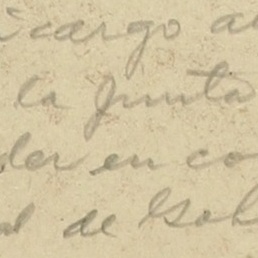 cargo a
la Junta
der en co
al de Gob